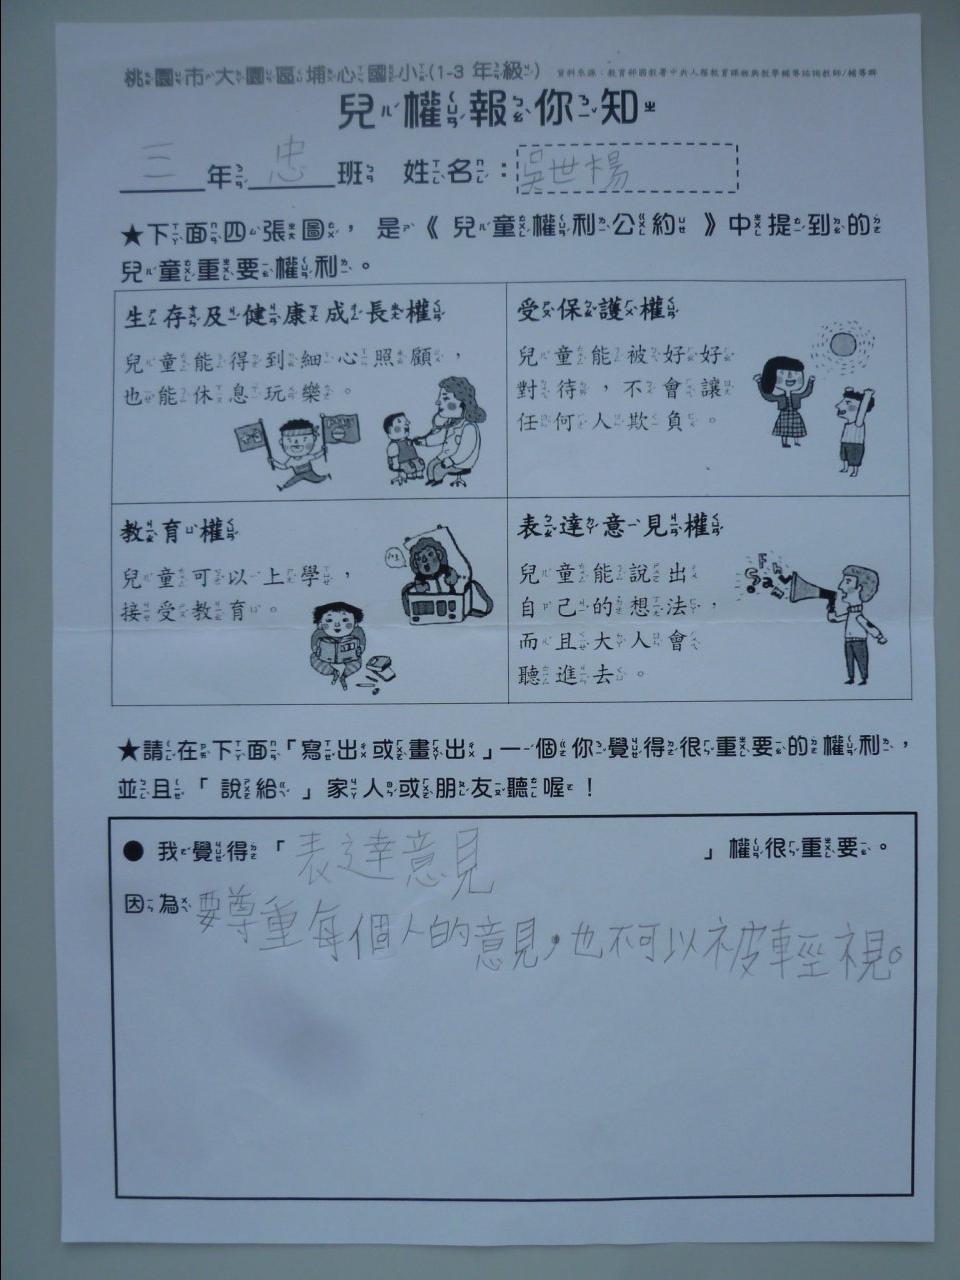 桃園市大園區埔心國小(1-3 年級) 資料來源：教育部國教署中央人權教育課務與教學輔導諮詢教師/輔導群
兒權報你知
三年忠班 姓名：吳世楊
★下面四張圖，是《兒童權利公約》中提到的
兒童重要權利。
生存及健康成長權
兒童能得到細心照顧，
也能休息玩樂。
受保護權
兒童能被好好
對待，不會讓
任何人欺負。
教育權
兒童可以上學，
接受教育。
表達意見權
兒童能說出
自己的想法，
而且大人會
聽進去。
★請在下面「寫出或畫出」一個你覺得很重要的權利，
並且「說給」家人或朋友聽喔！
●我覺得「表達意見」權很重要。
因為要尊重每個人的意見，也不可以被輕視。